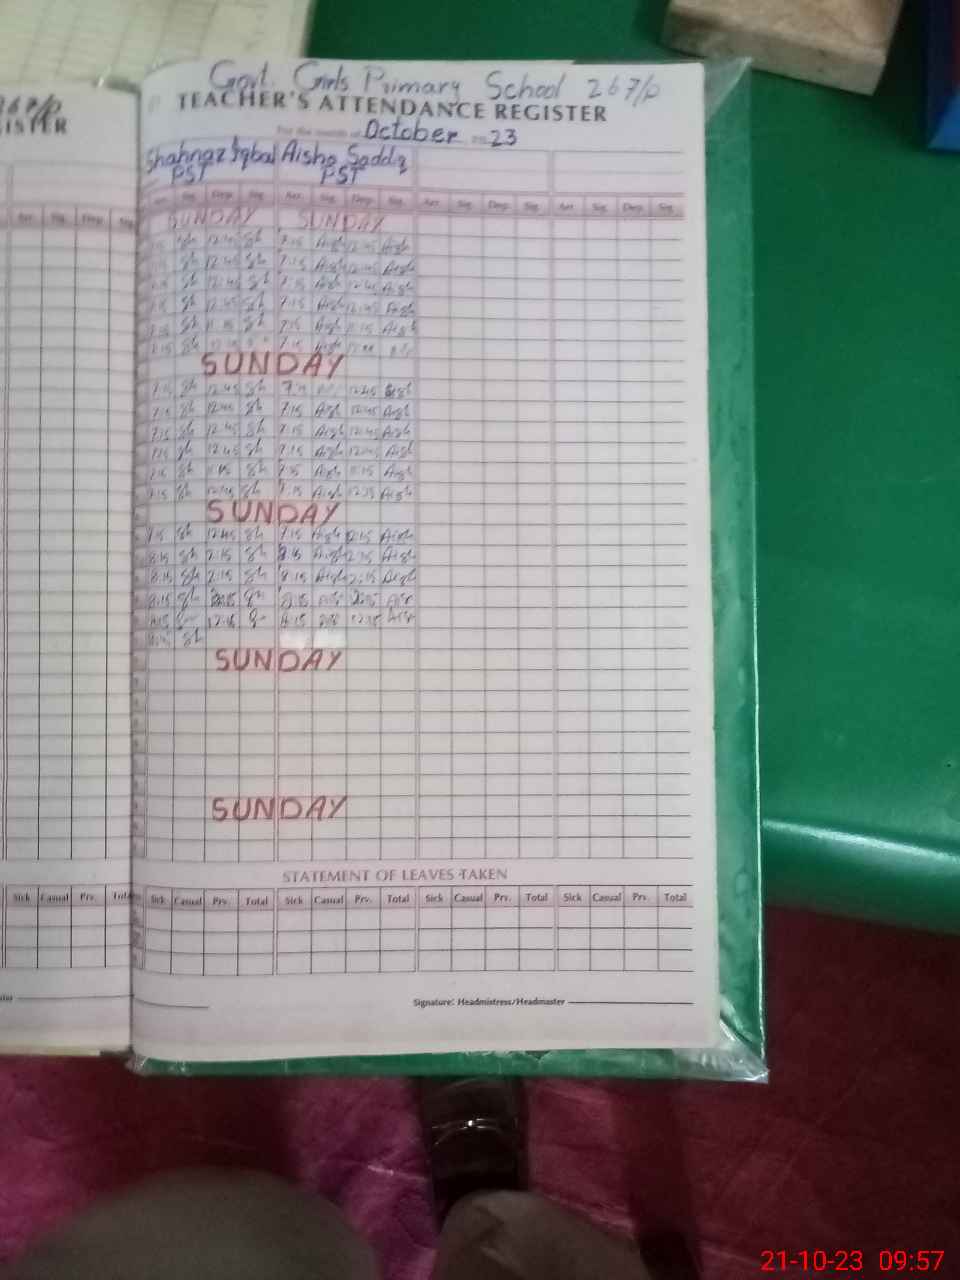 267/P
ISTER
Govt. Girls Primary School 267/P
TEACHER'S ATTENDANCE REGISTER
For the month of October 23
Shahnaz Iqbal Aisha Saddiq
PST PST
Arr. Sig. Dep. Sig. Arr. Sig. Dep. Sig. Arr. Sig. Dep. Sig. Arr. Sig. Dep. Sig.
SUNDAY SUNDAY
Sh 12:45 Sh 7:15 Aish 12:45 Aish
Sh 12:45 Sh 7:15 Aish 12:45 Aish
7:15 Sh 12:45 Sh 7:15 Aish 12:45 Aish
7:15 Sh 12:45 Sh 7:15 Aish 12:45 Aish
7:15 Sh 11:15 Sh 7:15 Aish 11:15 Aish
7:15 Sh 7:15 Aish
SUNDAY
7:15 Sh 12:45 Sh 7:15 12:45 Aish
7:15 Sh 12:45 Sh 7:15 Aish 12:45 Aish
7:15 Sh 12:45 Sh 7:15 Aish 12:45 Aish
7:15 Sh 12:45 Sh 7:15 Aish 12:45 Aish
7:15 Sh 11:15 Sh 7:15 Aish 11:15 Aish
7:15 Sh 12:45 Sh 7:15 Aish Aish
SUNDAY
7:15 Sh 12:45 Sh 7:15 Aish Aish
8:15 Sh 2:15 Sh 8:15 Aish 2:15 Aish
8:15 Sh 2:15 Sh 8:15 Aish 2:15 Aish
8:15 Sh 2:15 Sh 8:15 2:15
8:15 12:15 8:15 12:15
Sh
SUNDAY
SUNDAY
STATEMENT OF LEAVES TAKEN
Sick Casual Prv. Total Sick Casual Prv. Total Sick Casual Prv. Total Sick Casual Prv. Total
Signature: Headmistress/Headmaster
21-10-23 09:57